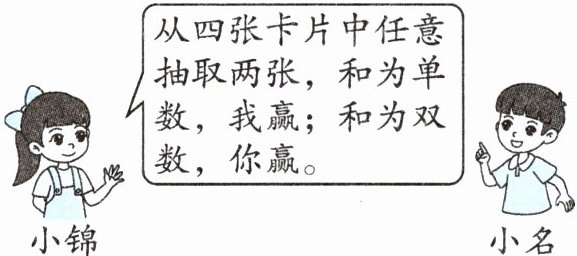 从四张卡片中任意
抽取两张，和为单
数，我赢；和为双
数，你赢。
小锦
小名